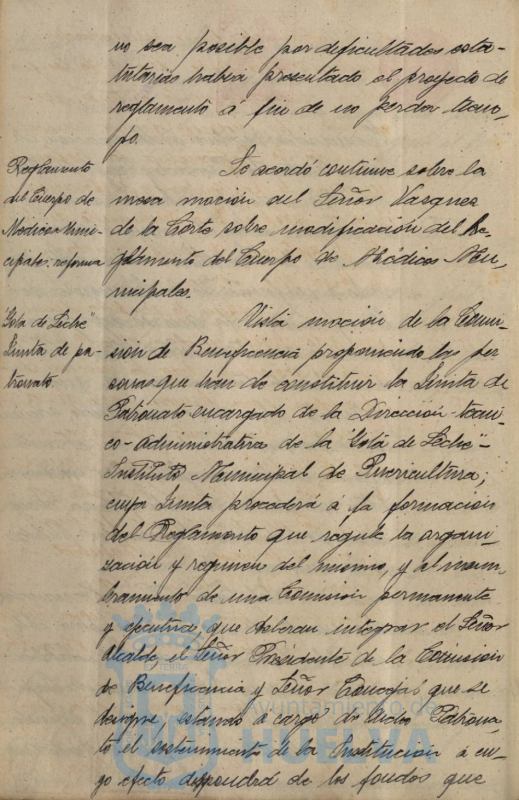 no sea posible por dificultades esta-
tutarias habia presentado el proyecto de
reglamento á fin de no perder tiem-
po.
Reglamento
del Cuerpo de
Médicos Muni-
cipales: reforma
Se acordó continue sobre la
mesa moción del Señor Vasques
de la Corte sobre modificación del Re-
glamento del Cuerpo de Médicos Mu-
nicipales.
"Gota de Leche"
Junta de pa-
tronato.
Vista moción de la Comi-
sión de Beneficencia proponiendo las per
sonas que han de constituir la Junta de
Patronato encargado de la Dirección tecni-
co-administrativa de la "Gota de Leche"-
Instituto Municipal de Puericultura;
cuya Junta procederá á la formacion
del Reglamento que regule la organi-
zación y regimen del mismo, y al nom-
bramiento de una Comision permanente
y ejecutiva, que deberan integrar el Señor
Alcalde, el Señor Presidente de la Comision
de Beneficencia y Señor Concejal que se
designe, estando á cargo de dicho Patrona-
to el sostenimiento de la Institucion á cu-
yo efecto dispondrá de los fondos que
Ayuntamiento de
HUELVA